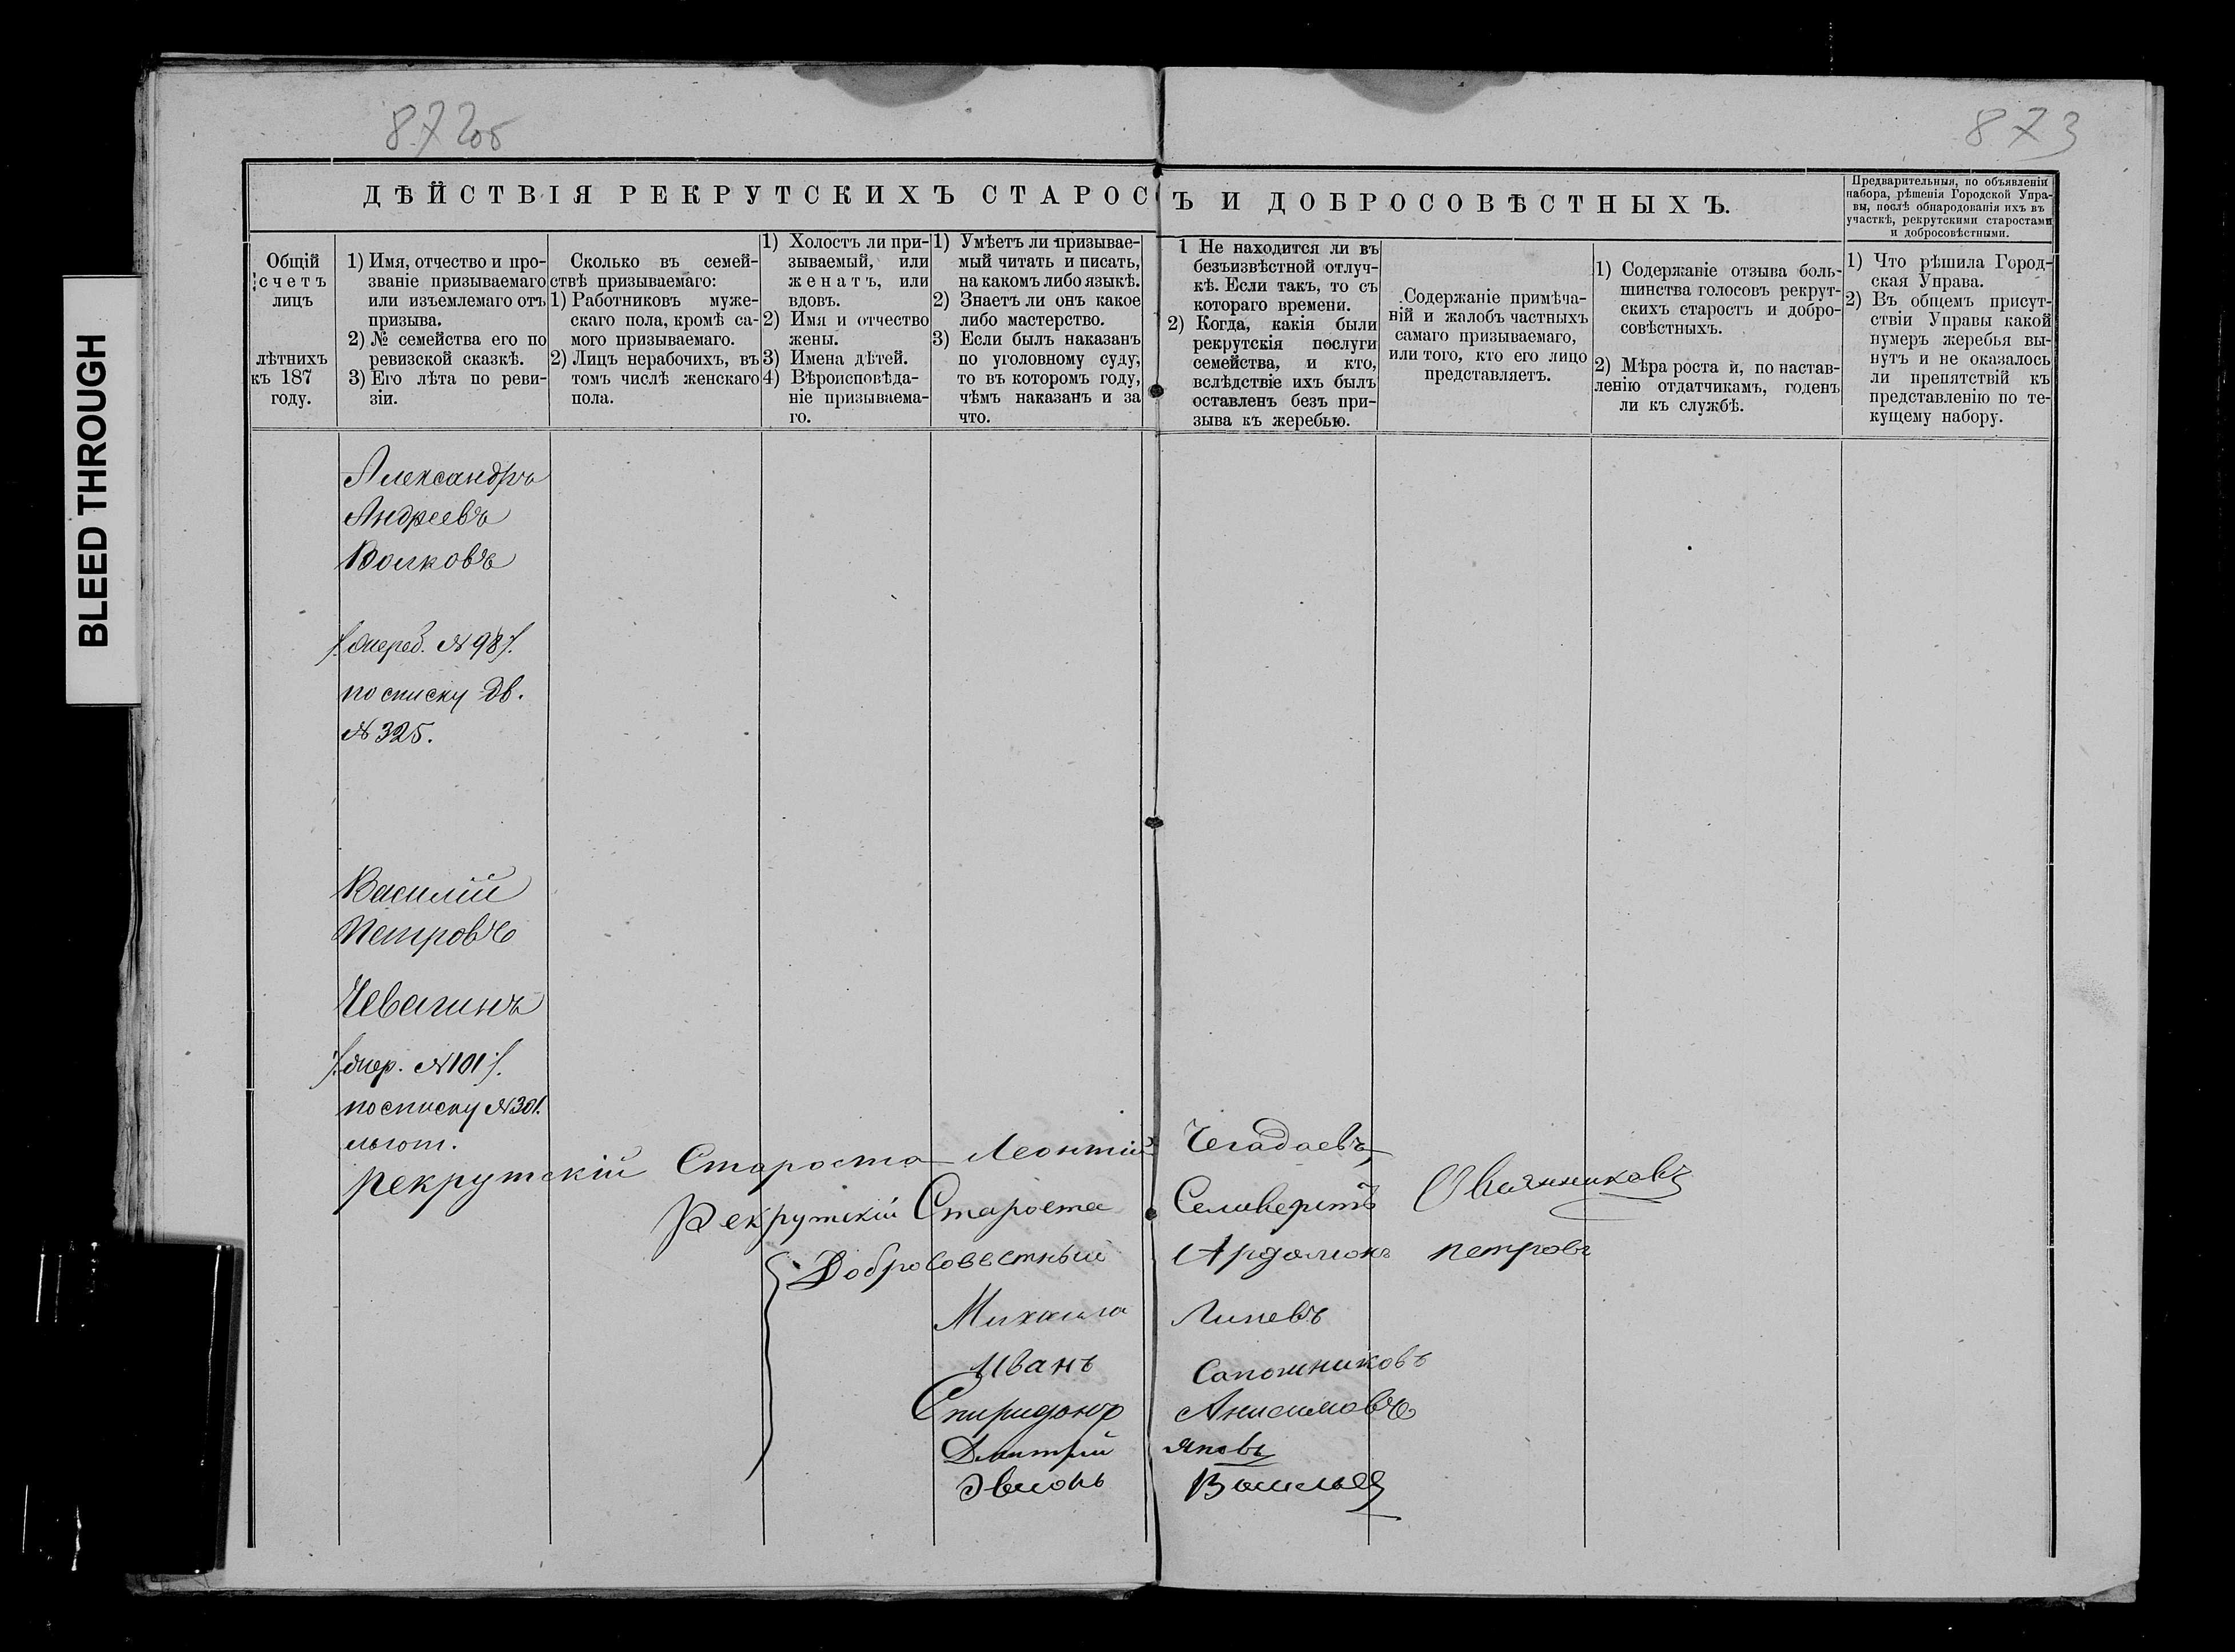 BLEED THROUGH
872об
873
ДѢЙСТВІЯ РЕКРУТСКИХЪ СТАРОС Ъ И ДОБРОСОВѢСТНЫХЪ.
Предварительныя, по объявленіи
набора, рѣшенія Городской Упра-
вы, послѣ обнародованія ихъ въ
участкѣ, рекрутскими старостами
и добросовѣстными.
Общій
счетъ
лицъ
лѣтнихъ
къ 187
году.
1) Имя, отчество и про-
званіе призываемаго
или изъемлемаго отъ
призыва.
2) № семейства его по
ревизской сказкѣ.
3) Его лѣта по реви-
зіи.
Сколько въ семей-
ствѣ призываемаго:
1) Работниковъ муже-
скаго пола, кромѣ са-
мого призываемаго.
2) Лицъ нерабочихъ, въ
томъ числѣ женскаго
пола.
1) Холостъ ли при-
зываемый, или
женатъ, или
вдовъ.
2) Имя и отчество
жены.
3) Имена дѣтей.
4) Вѣроисповѣда-
ніе призываема-
го.
1) Умѣетъ ли призывае-
мый читать и писать,
на какомъ либо языкѣ.
2) Знаетъ ли онъ какое
либо мастерство.
3) Если былъ наказанъ
по уголовному суду,
то въ которомъ году,
чѣмъ наказанъ и за
что.
1 Не находится ли въ
безъизвѣстной отлуч-
кѣ. Если такъ, то съ
котораго времени.
2) Когда, какія были
рекрутскія послуги
семейства, и кто,
вслѣдствіе ихъ былъ
оставленъ безъ при-
зыва къ жеребью.
Содержаніе примѣча-
ній и жалобъ частныхъ
самаго призываемаго,
или того, кто его лицо
представляетъ.
1) Содержаніе отзыва боль-
шинства голосовъ рекрут-
скихъ старостъ и добро-
совѣстныхъ.
2) Мѣра роста и, по настав-
ленію отдатчикамъ, годенъ
ли къ службѣ.
1) Что рѣшила Город-
ская Управа.
2) Въ общемъ присут-
ствіи Управы какой
нумеръ жеребья вы-
нутъ и не оказалось
ли препятствій къ
представленію по те-
кущему набору.
Александръ
Андреевъ
Волковъ
/жереб. № 98/.
по списку дв.
№ 325.
Василій
Петровъ
Чевагинъ
/жер. № 101/.
по списку № 301.
льгот.
Рекрутскій Староста Леонтій Чегадаевъ
Рекрутскій Староста Селиверстъ Овчинниковъ
Добросовестный Ардалионъ петровъ
Михаила Липевъ
Иванъ Сапожниковъ
Спиридонъ Анисимовъ
Дмитрий
Васильев